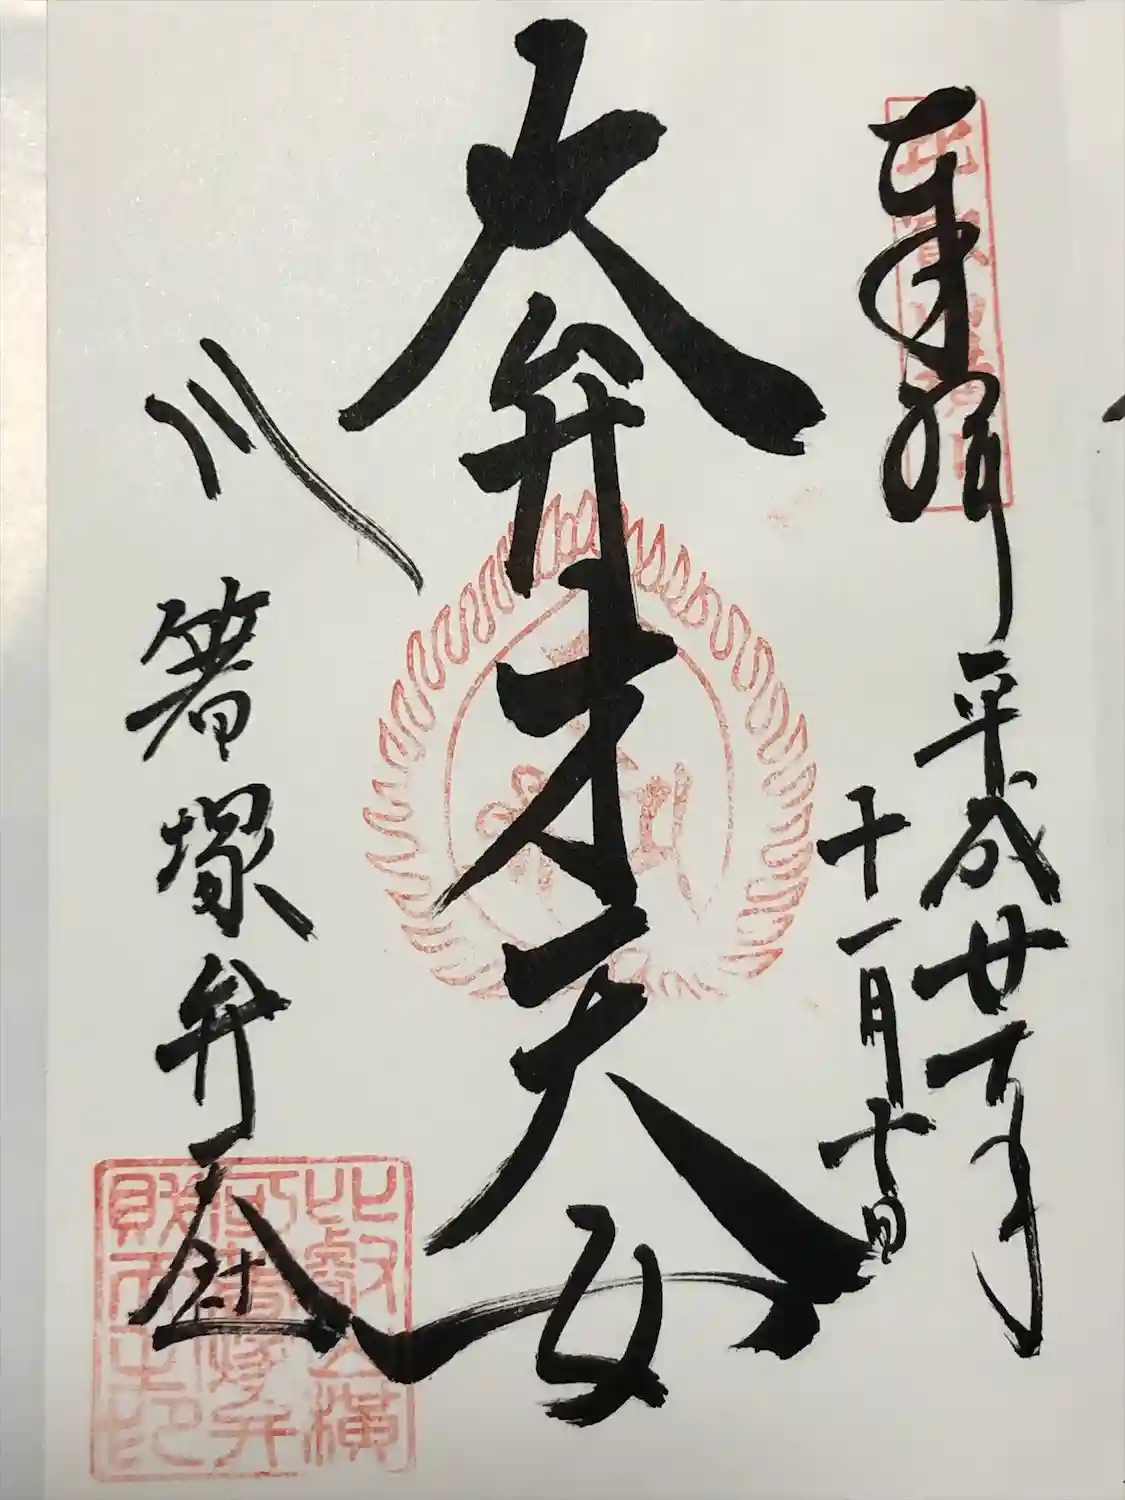 奉拝
平成廿一年
十一月十四日
大弁才天女
箸塚弁天
比叡山横
河箸塚弁
財天王印